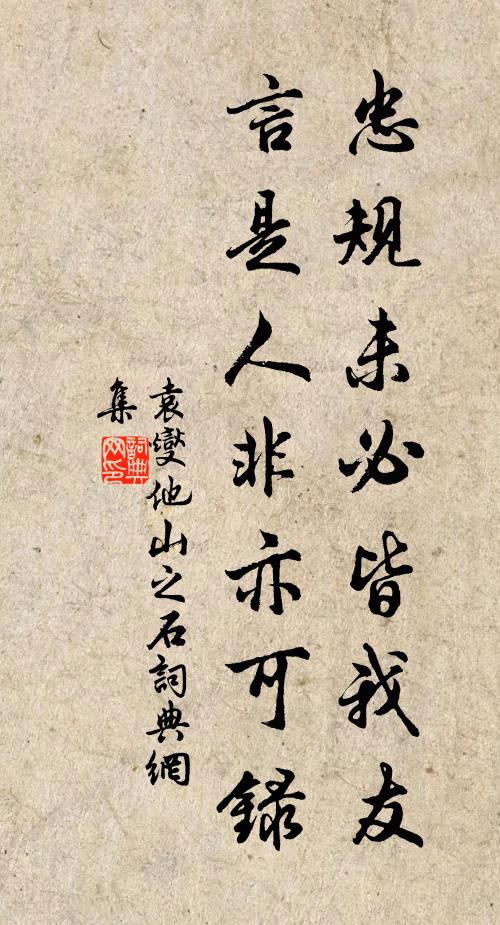 忠規未必皆我友
言是人非亦可錄
袁燮他山之石詞典網
集
詞典
网印